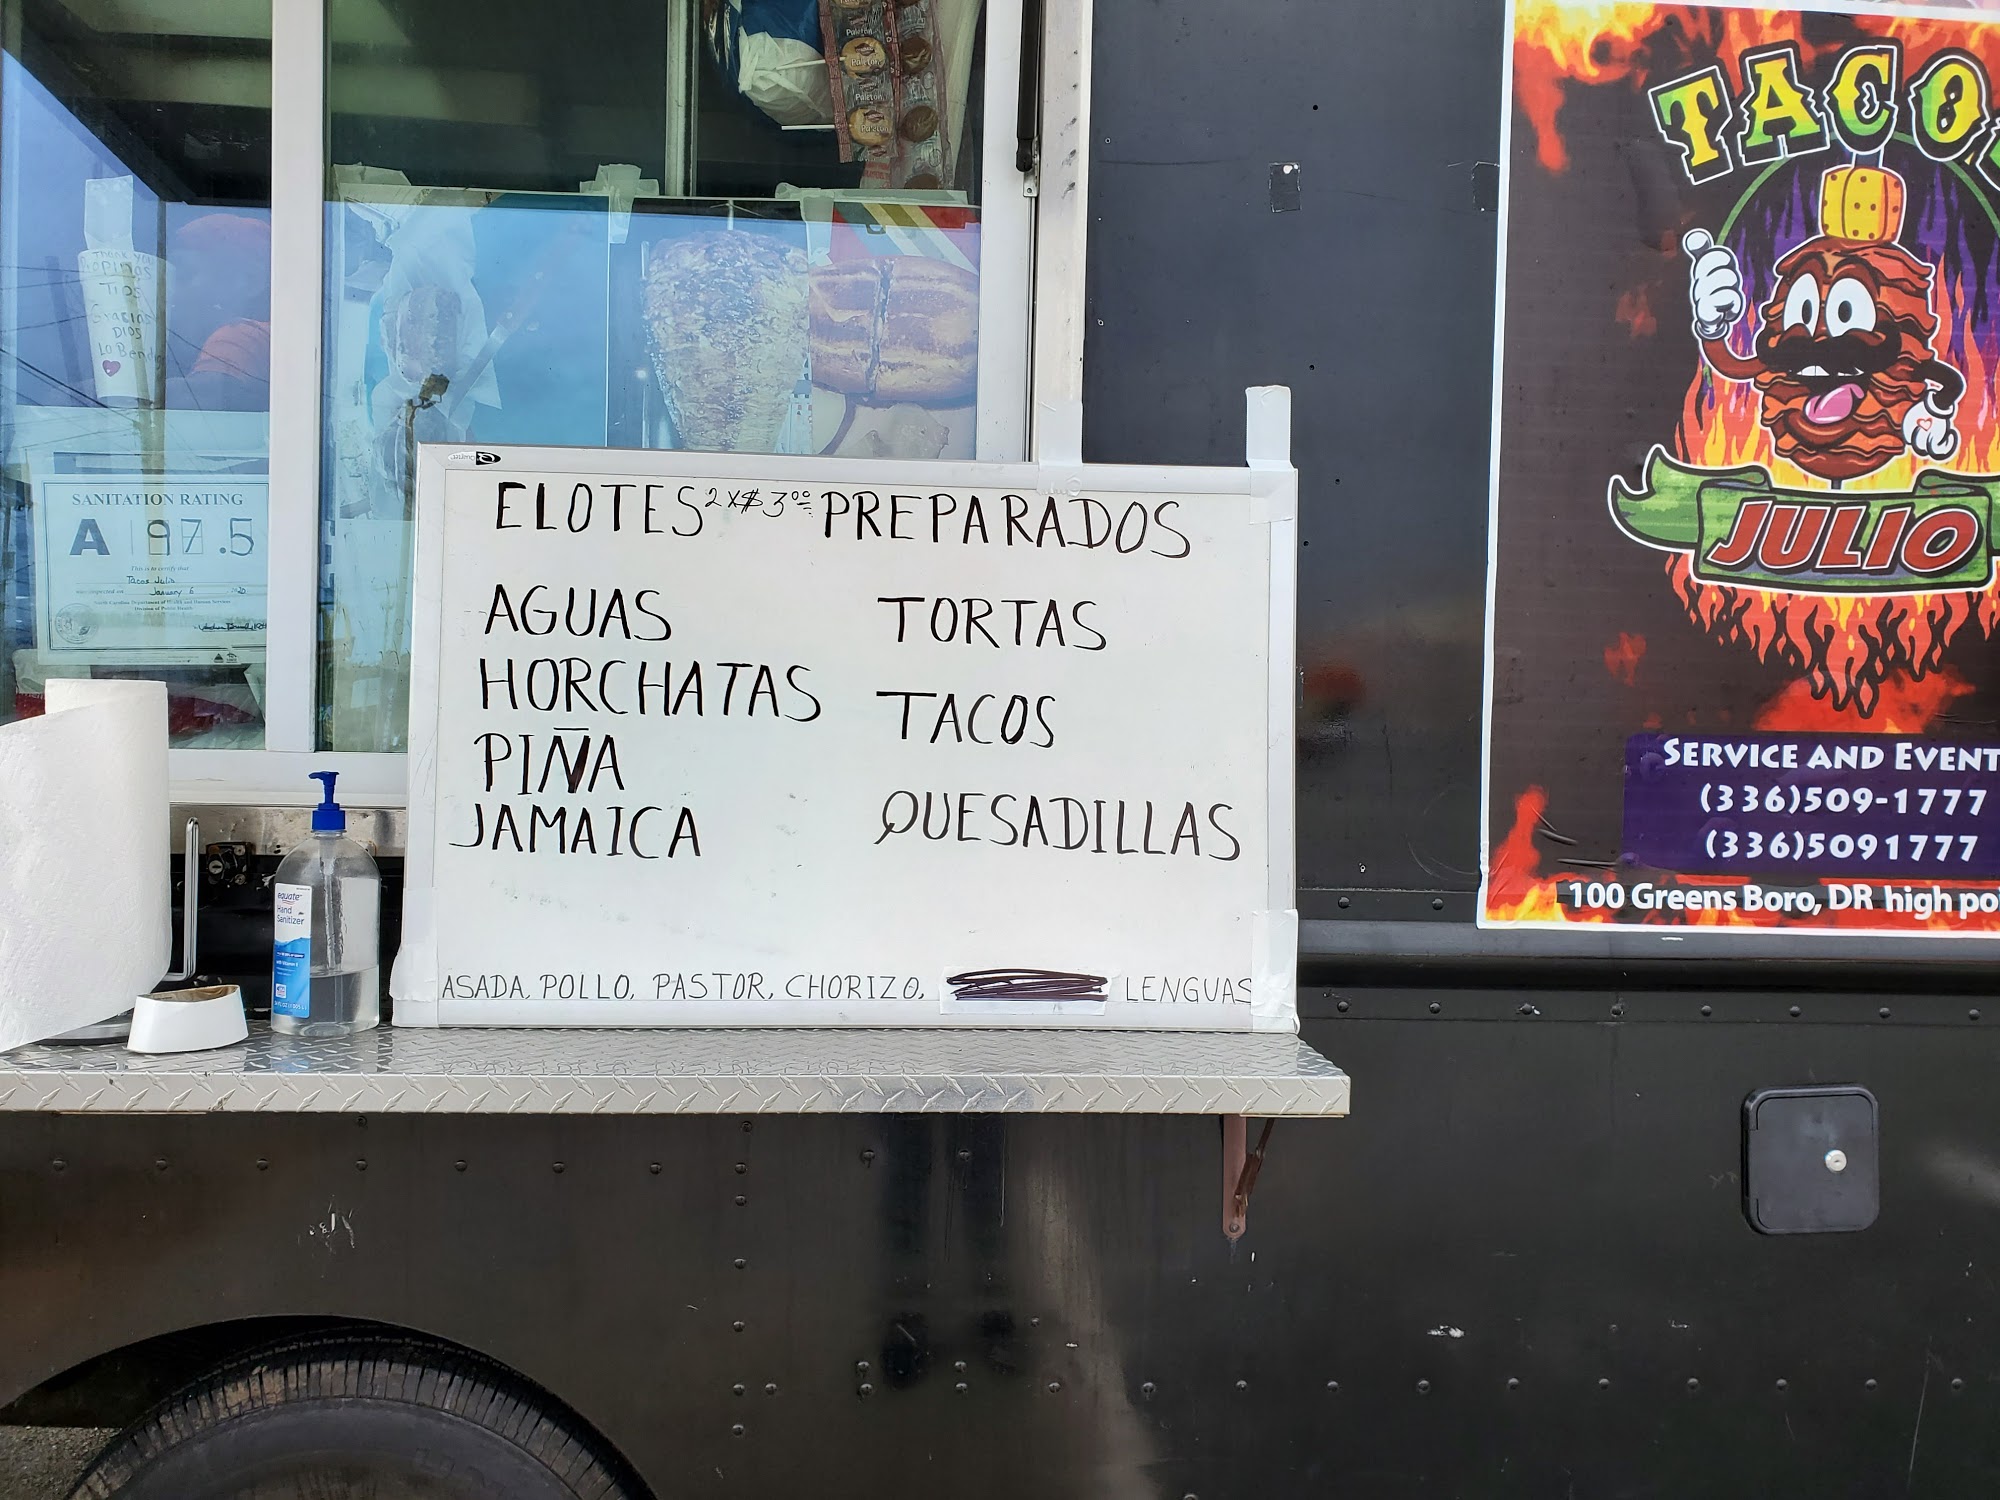 Paleton
Paleton
Paleton
THANK YOU
PROPINAS
TIPS
Gracias
DIOS
SANITATION RATING
A 97.5
This is to certify that
Tacos Julio
was inspected on January 6 2020
North Carolina Department of Health and Human Services
Division of Public Health
equate
Hand
Sanitizer
Quartet
ELOTES 2X$3.00 PREPARADOS
AGUAS
HORCHATAS
PIÑA
JAMAICA
TORTAS
TACOS
QUESADILLAS
ASADA, POLLO, PASTOR, CHORIZO, LENGUAS
TACOS
JULIO
SERVICE AND EVENT
(336)509-1777
(336)5091777
100 Greens Boro, DR high po